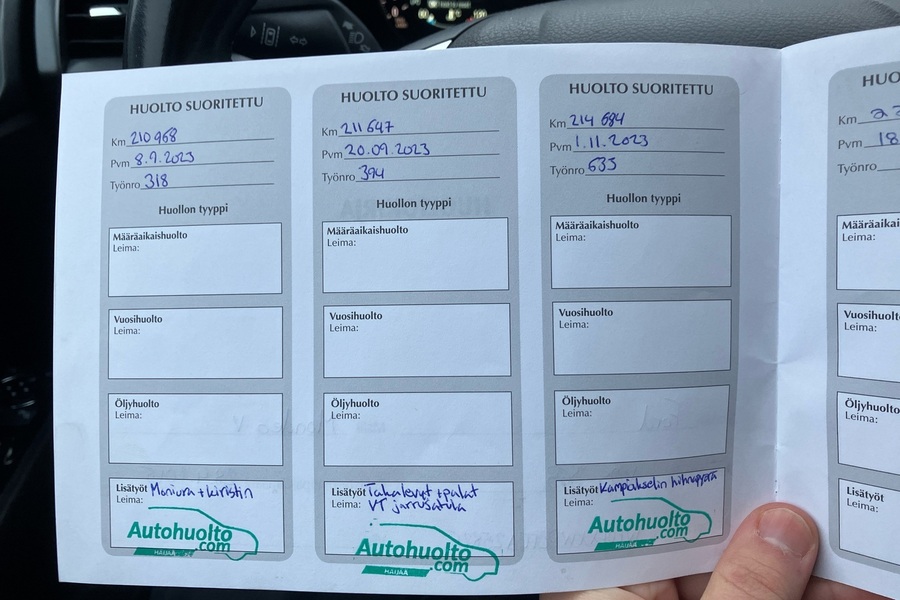 HUOLTO SUORITETTU
Km 210 968
Pvm 8.9.2023
Työnro 318
Huollon tyyppi
Määräaikaishuolto
Leima:
Vuosihuolto
Leima:
Öljyhuolto
Leima:
Lisätyöt Moniura + kiristin
Leima:
Autohuolto
.com
HAIJAA
HUOLTO SUORITETTU
Km 211 647
Pvm 20.09.2023
Työnro 394
Huollon tyyppi
Määräaikaishuolto
Leima:
Vuosihuolto
Leima:
Öljyhuolto
Leima:
Lisätyöt Takalevyt + palat
Leima: VT jarrusatula
Autohuolto
.com
HAIJAA
HUOLTO SUORITETTU
Km 214 684
Pvm 1.11.2023
Työnro 635
Huollon tyyppi
Määräaikaishuolto
Leima:
Vuosihuolto
Leima:
Öljyhuolto
Leima:
Lisätyöt Kampiakselin hihnapyörä
Leima:
Autohuolto
.com
HUO
Km 22
Pvm 18
Työnro
Määräaikai
Leima:
Vuosihuolto
Leima:
Öljyhuolto
Leima:
Lisätyöt
Leima: